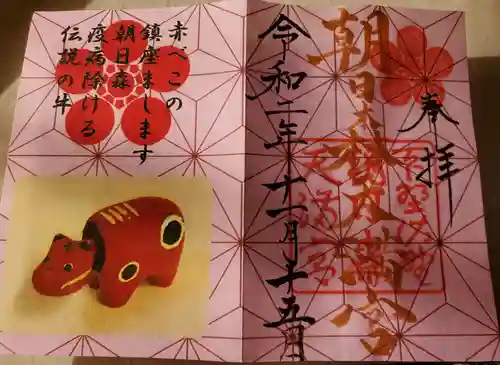 奉拝
朝日森天満宮
令和二年十一月十五日
赤べこの
鎮座まします
朝日森
疫病除ける
伝説の牛